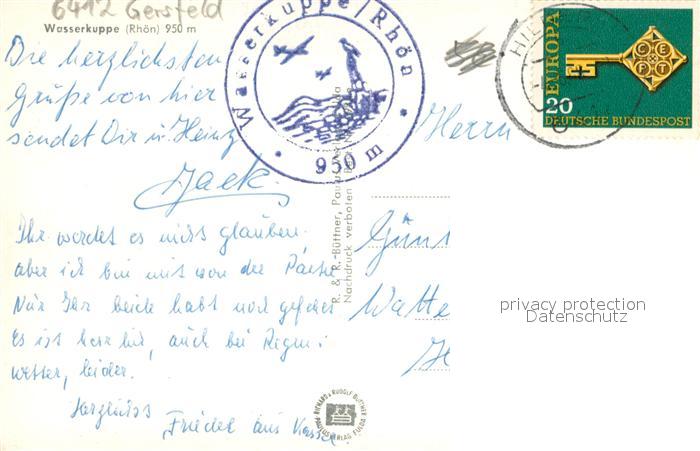 6412 Gersfeld
Wasserkuppe (Rhön) 950 m
Die herzlichsten
Grüße von hier
sendet Dir u. Heinz
Jack
Ihr werdet es nicht glauben,
aber ich bin mit von der Partie
Nur Ihr beide habt noch gefehlt
Es ist herrlich, auch bei Regen-
wetter, leider.
Herzlichst
Friedel aus Kassel
Wasserkuppe/Rhön
950 m
R. & R. Büttner, Paulus
Nachdruck verboten
RICHARD & RUDOLF BÜTTNER
PAULUSVERLAG FULDA
EUROPA
CEPT
20
DEUTSCHE BUNDESPOST
Herrn
Günt
Watte
privacy protection
Datenschutz